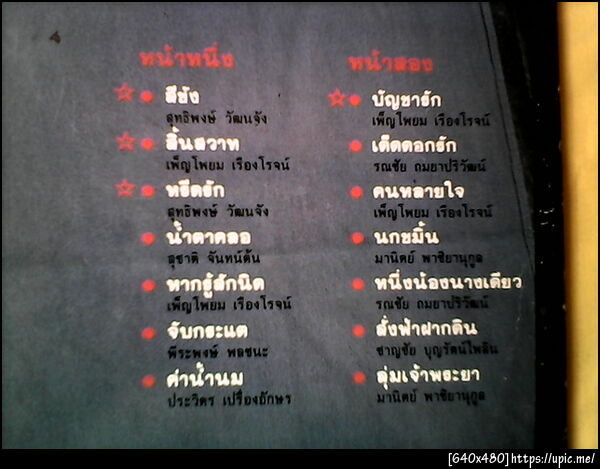 หน้าหนึ่ง
สียัง
สุทธิพงษ์ วัฒนจัง
สิ้นสวาท
เพ็ญโพยม เรืองโรจน์
หรีดรัก
สุทธิพงษ์ วัฒนจัง
น้ำตาคลอ
สุชาติ จันทน์ต้น
หากรู้สักนิด
เพ็ญโพยม เรืองโรจน์
จับกระแต
พีระพงษ์ พลชนะ
ค่าน้ำนม
ประวิตร เปรื่องอักษร
หน้าสอง
บัญชารัก
เพ็ญโพยม เรืองโรจน์
เด็ดดอกรัก
รณชัย ถมยาปริวัฒน์
คนหลายใจ
เพ็ญโพยม เรืองโรจน์
นกขมิ้น
มานิตย์ พาชิยานุกูล
หนึ่งน้องนางเดียว
รณชัย ถมยาปริวัฒน์
สั่งฟ้าฝากดิน
ชาญชัย บุญรัตน์ไพลิน
ลุ่มเจ้าพระยา
มานิตย์ พาชิยานุกูล
[640x480]https://upic.me/